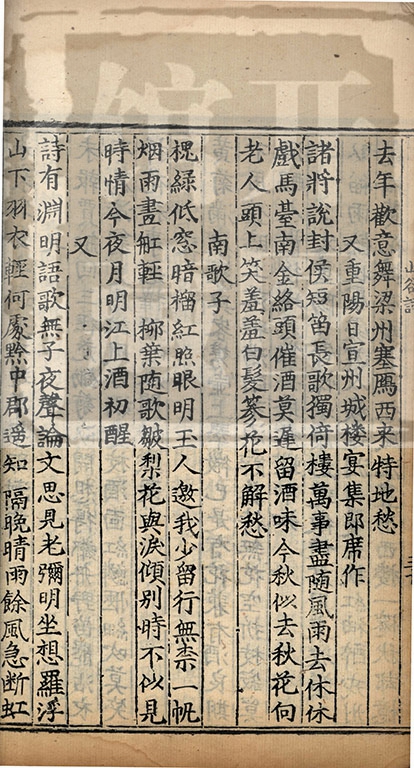 去年歡意舞梁州塞鴈西来特地愁
又重陽日宣州城樓宴集即席作
諸將說封侯短笛長歌獨倚樓萬事盡随風雨去休休
戲馬臺南金絡頭催酒莫遲留酒味今秋似去秋花向
老人頭上笑羞羞白髮簪花不解愁
南歌子
槐綠低窓暗榴紅照眼明玉人邀我少留行無柰一帆
烟雨畫舡輕 柳葉随歌皺梨花與淚傾別時不似見
時情今夜月明江上酒初醒
又
詩有淵明語歌無子夜聲論文思見老彌明坐想羅浮
山下羽衣輕何處黔中郡遥知隔晚晴雨餘風急断虹